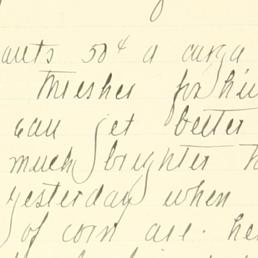 wants 50¢ a
thresher for him
can get better
much brighter
yesterday when
of corn are. he